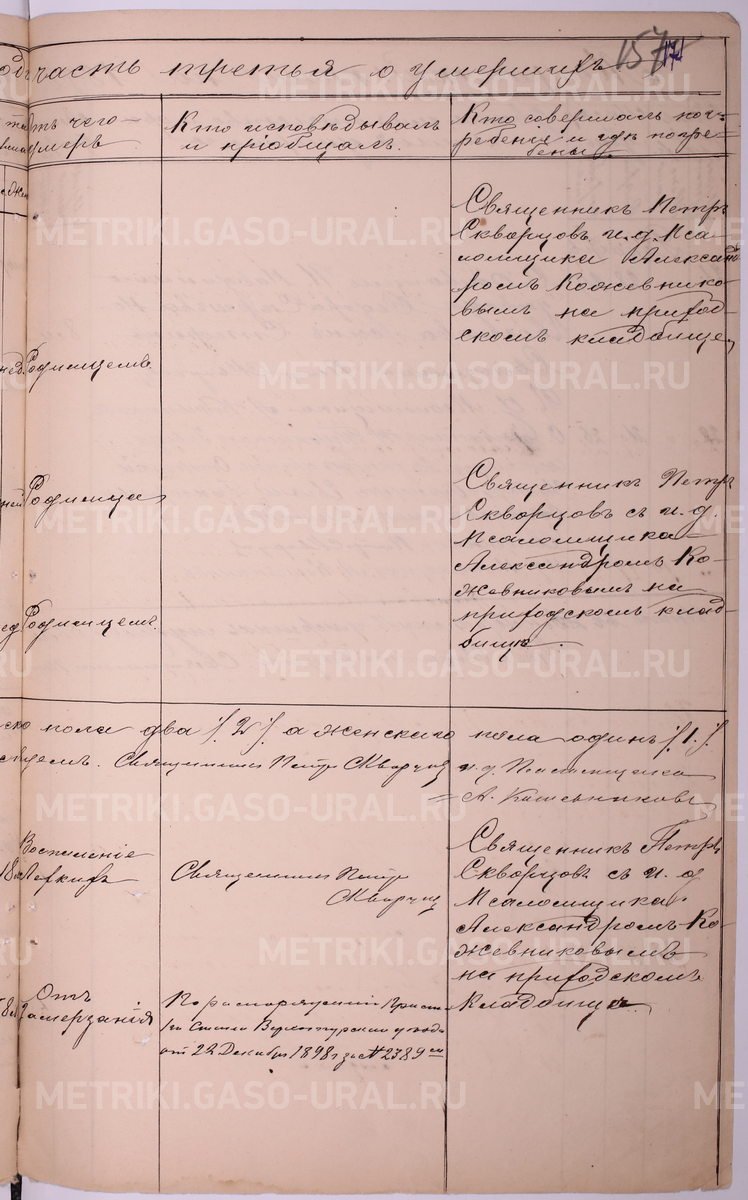 часть третья о умершихъ 157
отъ чего
умеръ
Кто исповѣдывалъ
и пріобщалъ.
Кто совершалъ погре-
ребеніе и гдѣ погре-
бены
Священникъ Петръ
Скварцовъ и. д. Пса-
ломщика Александ
ромъ Кожевнико-
вымъ на приход-
скомъ кладбище
Родимцемъ
Родимца
Священникъ Петръ
Скварцовъ съ и. д.
Псаломщика
Александромъ Ко-
жевниковымъ на
приходскомъ клад-
бище.
Родимцемъ.
ско пола два /. 2 /. а женскаго пола одинъ /. 1. /.
Священникъ Петръ Скварцовъ
и. д. Псаломщика
А. Кожевниковъ
Воспаленіе
Легкихъ
Священникъ Петръ
Скварцовъ
Священникъ Петръ
Скварцовъ съ и. д
Псаломщика
Александромъ Ко-
жевниковымъ
на приходскомъ
кладбище.
Отъ
замерзанія
По распоряженію Прист.
1го Стана Верхотурскаго уѣзда
отъ 22 Декабря 1898 г за № 2389
METRIKI.GASO-URAL.RU